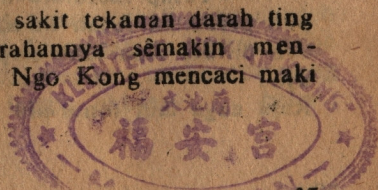 sakit tekanan darah ting
rahannya sêmakin men-
Ngo Kong mencaci maki
KLENTENG
福安宮